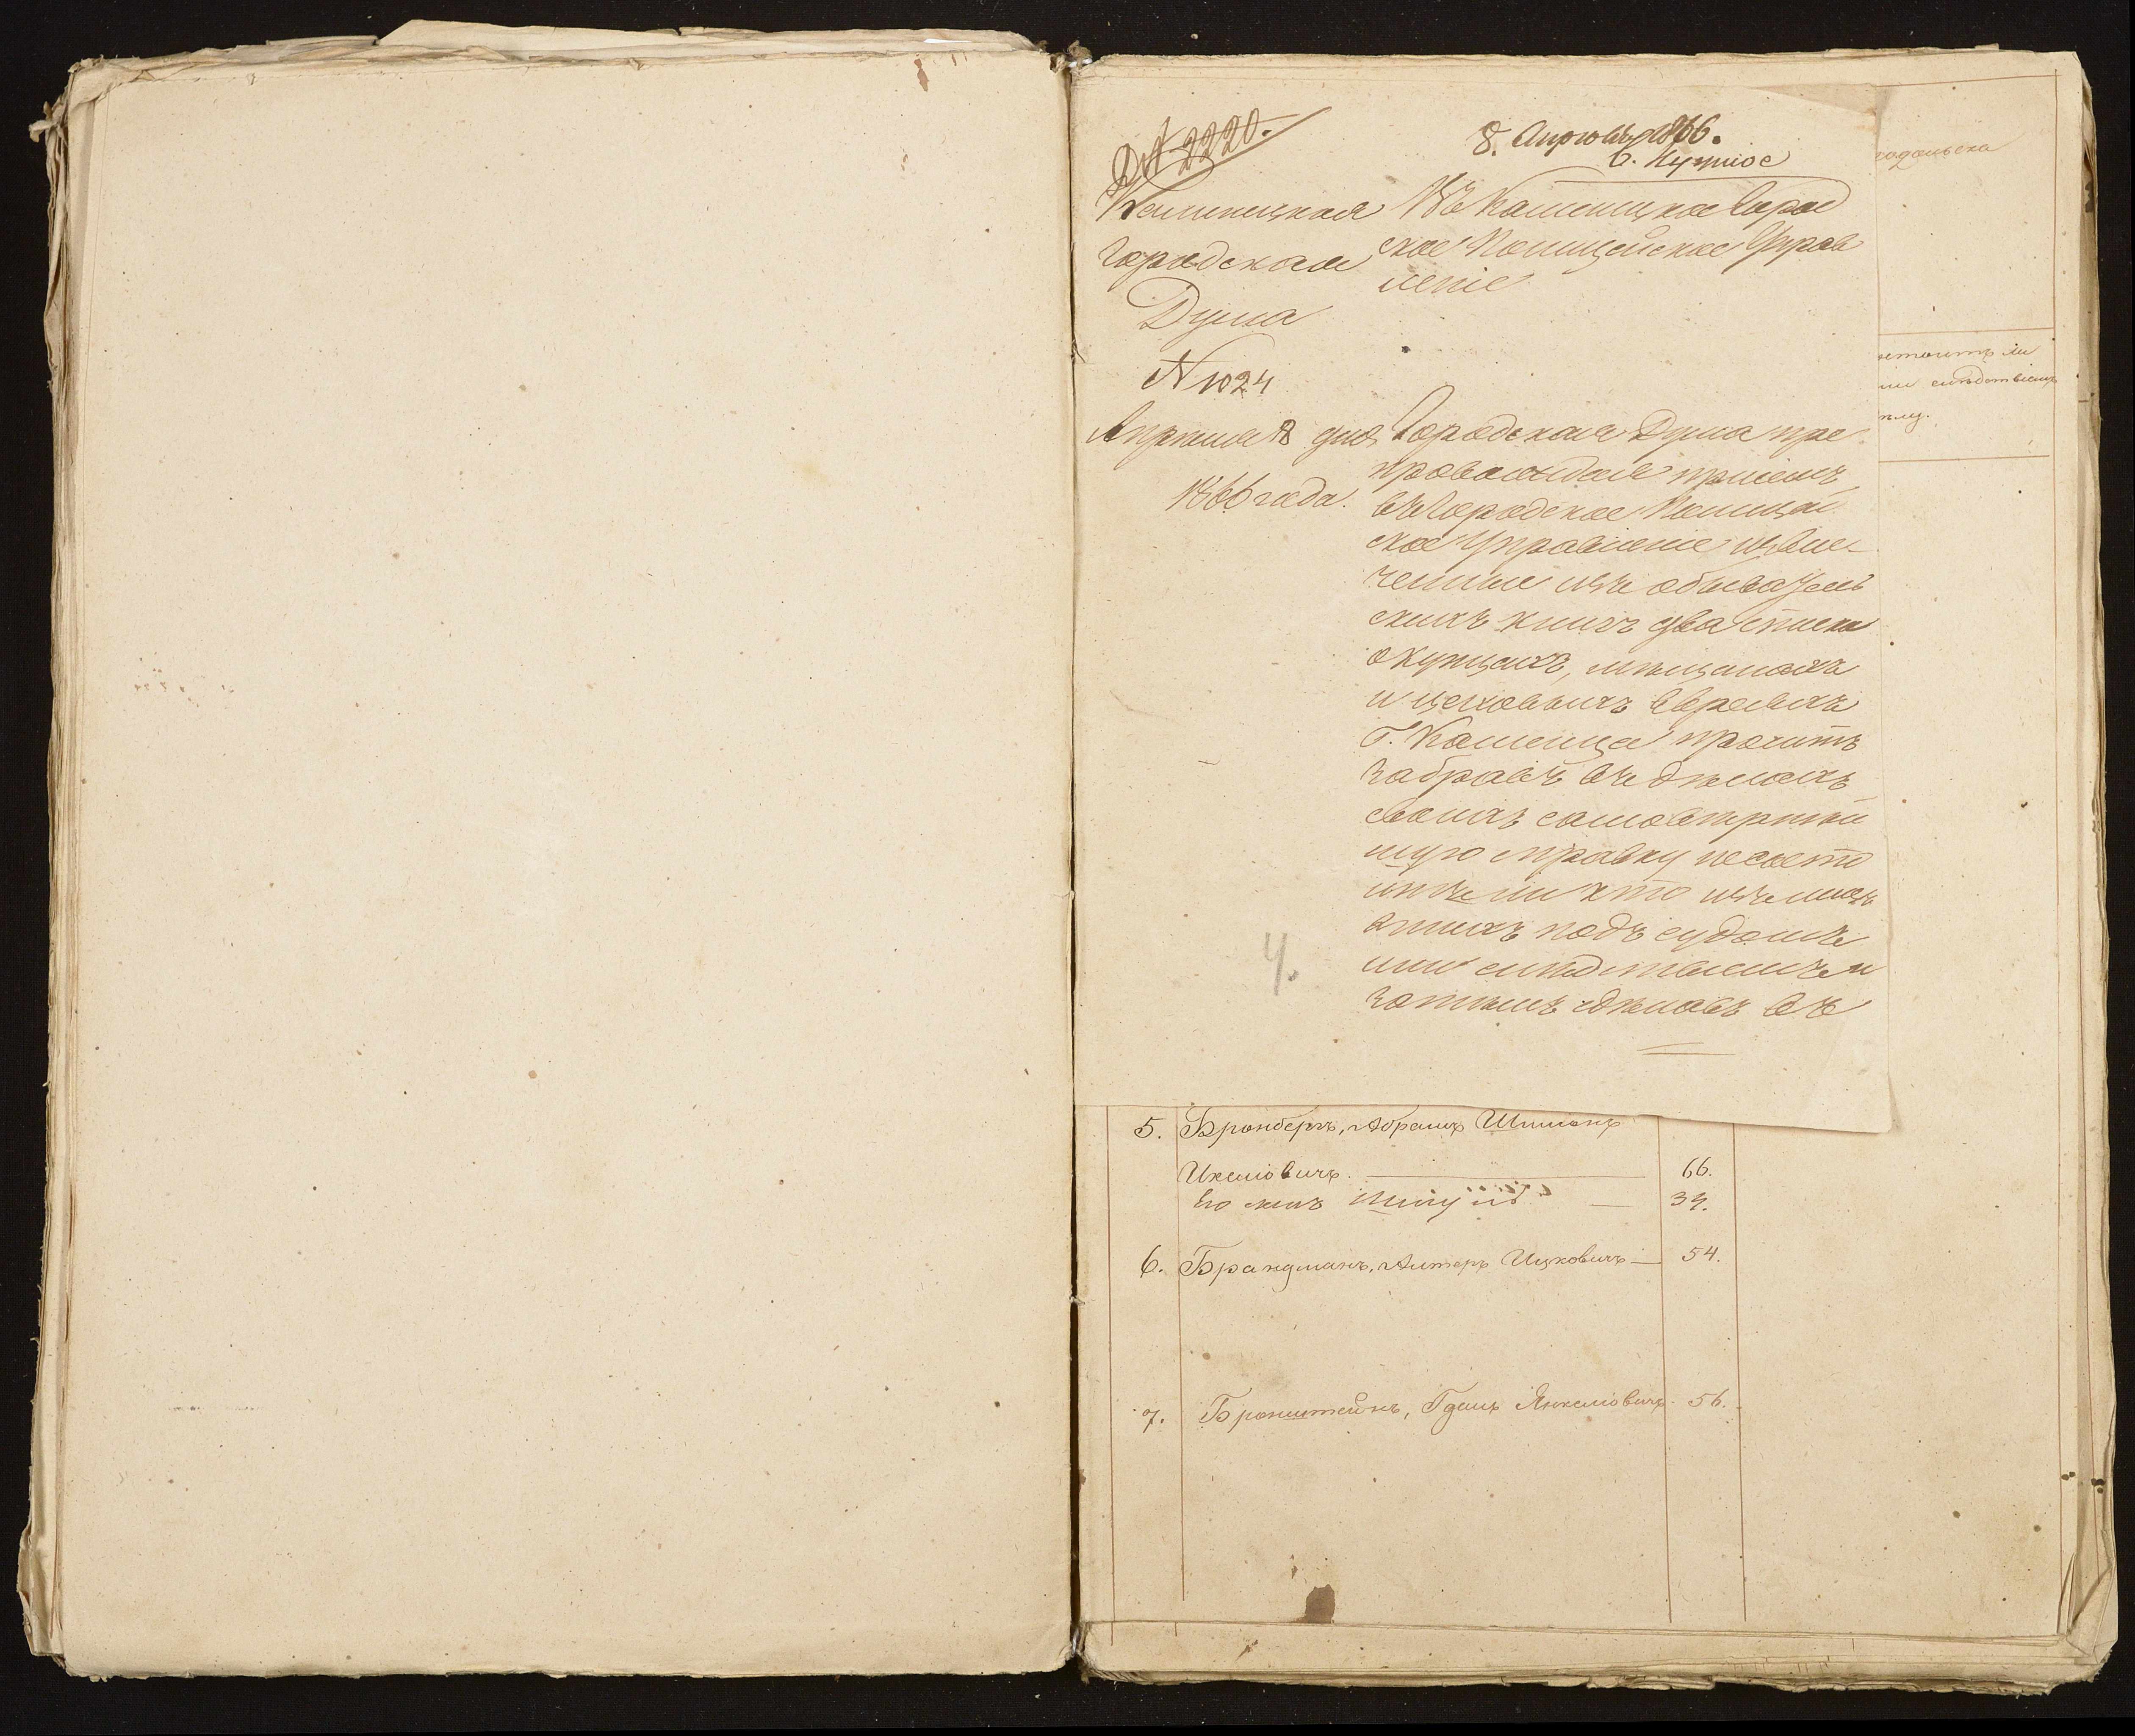 № 2220.
8. Апрѣля 1866.
Каменецкая
Городская
Дума
N 1024
Апрѣля 8 дня
1866 года.
Въ Каменецкое Город
ское Полицейское Управ
леніе
Городская Дума пре
провождая при семъ
въ Городское Полицей
ское Управленіе извле-
ченные изъ обыватель
скихъ книгъ два списка
о купцахъ, мѣщанахъ
и цеховыхъ Евреяхъ
Г. Каменца проситъ
забравъ въ дѣлахъ
своихъ самовѣрнѣй
шую справку несосто
итъ ли кто изъ лицъ
этихъ подъ судомъ
или слѣдствіемъ и
затѣмъ сдѣлавъ въ
4.
подольска
остоитъ ли
или слѣдствіемъ
5. Бронбергъ, Абрамъ Шимонъ
Ицковичъ. 66.
Его сынъ 34.
6. Брандманъ, Алтеръ Ицковичъ 54.
7. Бронштейнъ, Гдаль Янкелiовичъ 56.